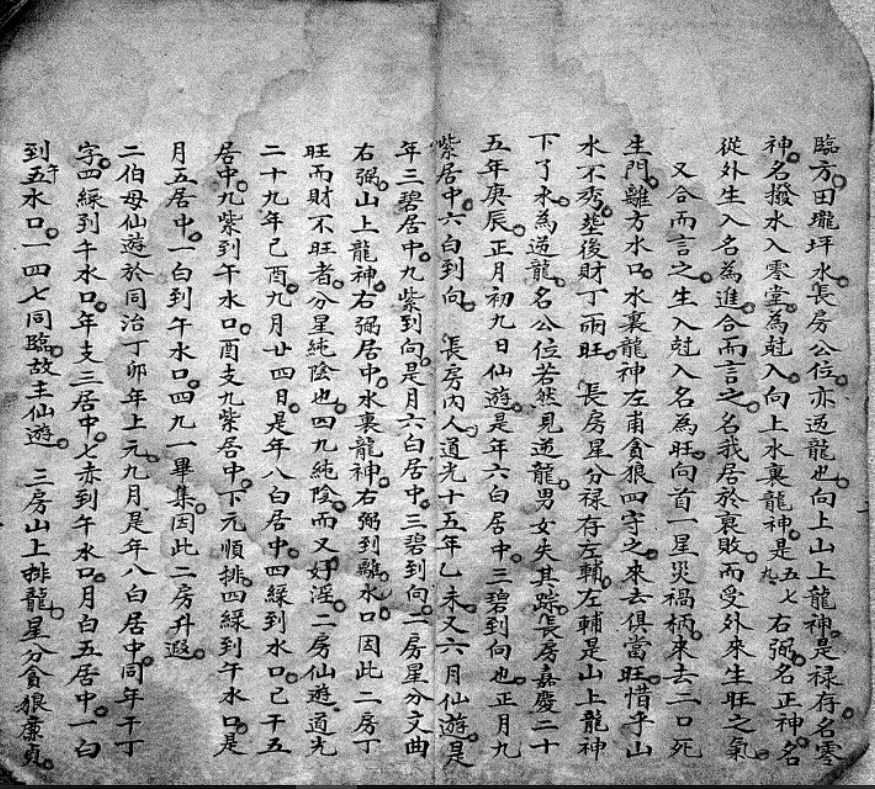 臨方田壠坪水。長房公位。亦逆龍也。向上山上龍神。是祿存。名零
神。名撥水入零堂。為尅入。向上水裏龍神。是五七九右弼。名正神。名
從外生入名為進。合而言之。名我居於衰敗。而受外來生旺之氣。
又合而言之。生入尅入名為旺。向首一星災禍柄。來去二口死
生門。離方水口。水裏龍神左甫貪狼四守之。來去俱當旺。惜乎山
水不秀。塟後財丁兩旺。 長房星分禄存左輔。左輔是山上龍神
下了水。為逆龍。名公位若然見逆龍。男女失其踪。長房嘉慶二十
五年庚辰。正月初九日仙遊。是年六白居中。三碧到向也。正月九
紫居中。六白到向。 長房內人。道光十五年乙未。又六月仙遊。是
年三碧居中。九紫到向。是月六白居中。三碧到向。二房星分文曲
右弼。山上龍神。右弼居中。水裏龍神。右弼到離。水口。因此二房丁
旺而財不旺者。分星純陰也。四九純陰。而又好淫。二房仙遊。道光
二十九年己酉。九月廿四日。是年八白居中。四綠到水口。己干五
居中。九紫到午水口。酉支九紫居中。下元順排。四綠到午水口。是
月五居中。一白到午水口。四九一畢集。因此二房升遐。
二伯母仙遊於同治丁卯年上元。九月是年八白居中。同年干丁
字。四綠到午水口。年支三居中。七赤到午水口。月白五居中。一白
到午五水口。一四七同臨。故主仙遊。 三房山上排龍。星分貪狼廉貞。